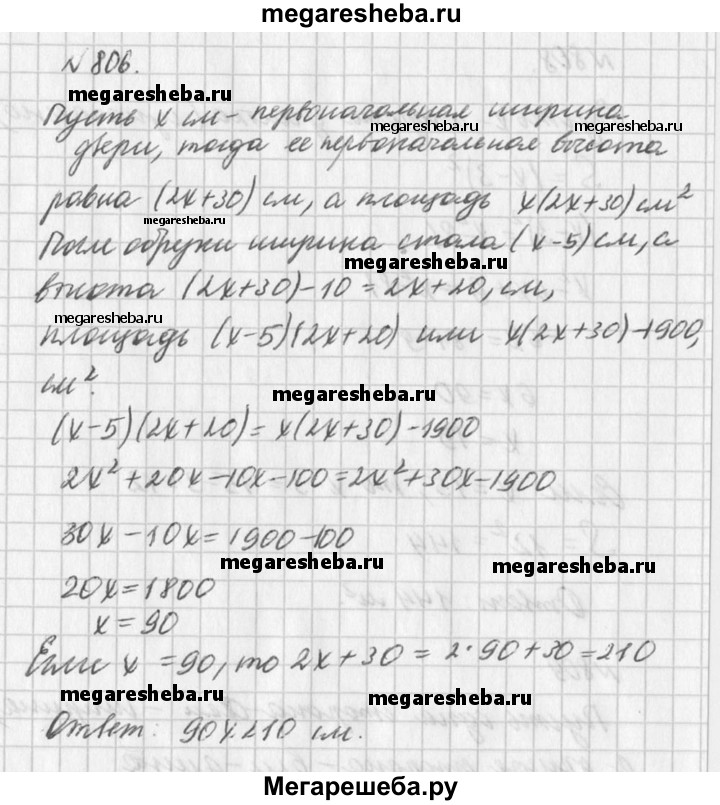 megaresheba.ru
N 806.
megaresheba.ru
Пусть x см - первоначальная ширина
megaresheba.ru megaresheba.ru
двери, тогда ее первоначальная высота
равна (2x+30) см, а площадь x(2x+30) см²
megaresheba.ru
После обрезки ширина стала (x-5) см, а
megaresheba.ru
высота (2x+30)-10=2x+20, см,
площадь (x-5)(2x+20) или x(2x+30)-1900,
см².
megaresheba.ru
(x-5)(2x+20)=x(2x+30)-1900
2x²+20x-10x-100=2x²+30x-1900
30x-10x=1900-100
megaresheba.ru megaresheba.ru
20x=1800
x=90
Если x =90, то 2x+30 = 2·90+30=210
megaresheba.ru megaresheba.ru
Ответ: 90x210 см.
Мегарешеба.ру